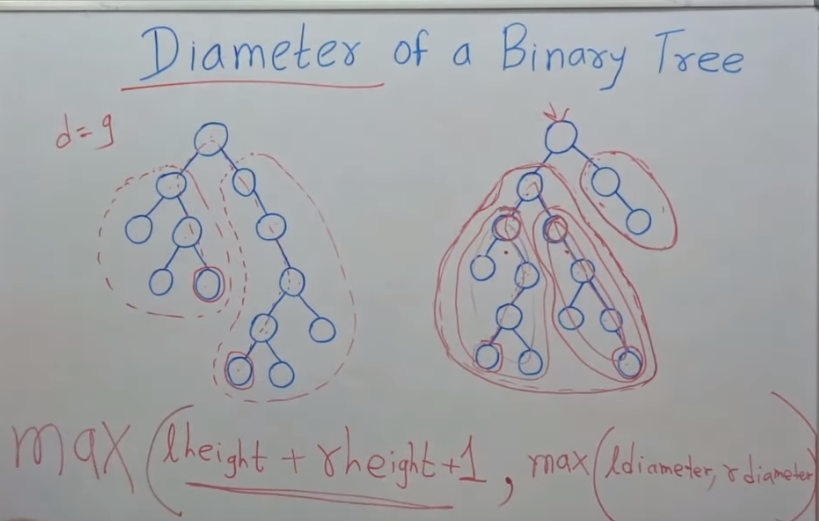 Diameter of a Binary Tree
d=9
max(lheight + rheight+1, max(ldiameter, rdiameter)